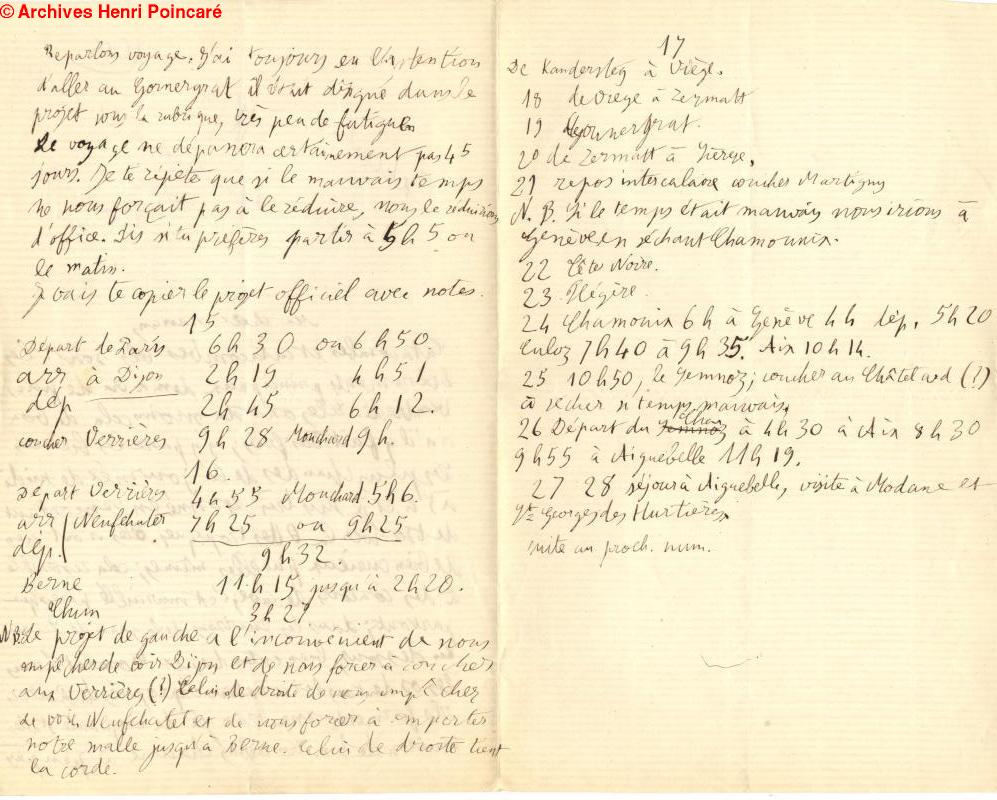 © Archives Henri Poincaré
Reparlons voyage. J'ai toujours eu l'intention
d'aller au Gornergrat il était désigné dans le
projet sous la rubrique, très peu de fatigue
Le voyage ne dépassera certainement pas 45
jours. Je te répète que si le mauvais temps
ne nous forçait pas à le réduire, nous le réduirions
d'office. Dis si tu préfères partir à 5h 5 ou
le matin.
Je vais te copier le projet officiel avec notes.
15
Départ de Paris 6h 30 ou 6h 50
arr à Dijon 2h 19 4h 51
dép 2h 45 6h 12.
coucher Verrières 9h 28 Mouchard 9h.
16.
Départ Verrières 4h 55 Mouchard 5h 6.
arr Neufchatel 7h 25 ou 9h 25
dép. 9h 32.
Berne 11h 15 jusqu'à 2h 20.
Thun 3h 27
N.B. Le projet de gauche a l'inconvénient de nous
empêcher de voir Dijon et de nous forcer à coucher
aux Verrières (!) Celui de droite de nous empêcher
de voir Neufchatel et de nous forcer à emporter
notre malle jusqu'à Berne. Celui de droite tient
la corde.
17
De Kandersteg à Viège.
18 de Viège à Zermatt
19 Gornergrat.
20 de Zermatt à Sierre.
21 repos intercalaire coucher Martigny
N.B. Si le temps était mauvais nous irions à
Genève en séchant Chamounix.
22 Tête Noire.
23 Flégère.
24 Chamonix 6h à Genève 4h dép. 5h 20
Culoz 7h 40 à 9h 35. Aix 10h 14.
25 10h50, le Semnoz; coucher au Châtelard (!)
à sécher si temps mauvais.
26 Départ du Semnoz Cha à 4h 30 à Aix 8h 30
9h 55 à Aiguebelle 11h 19.
27 28 séjour à Aiguebelle, visite à Modane et
St Georges des Hurtières
suite au proch. num.